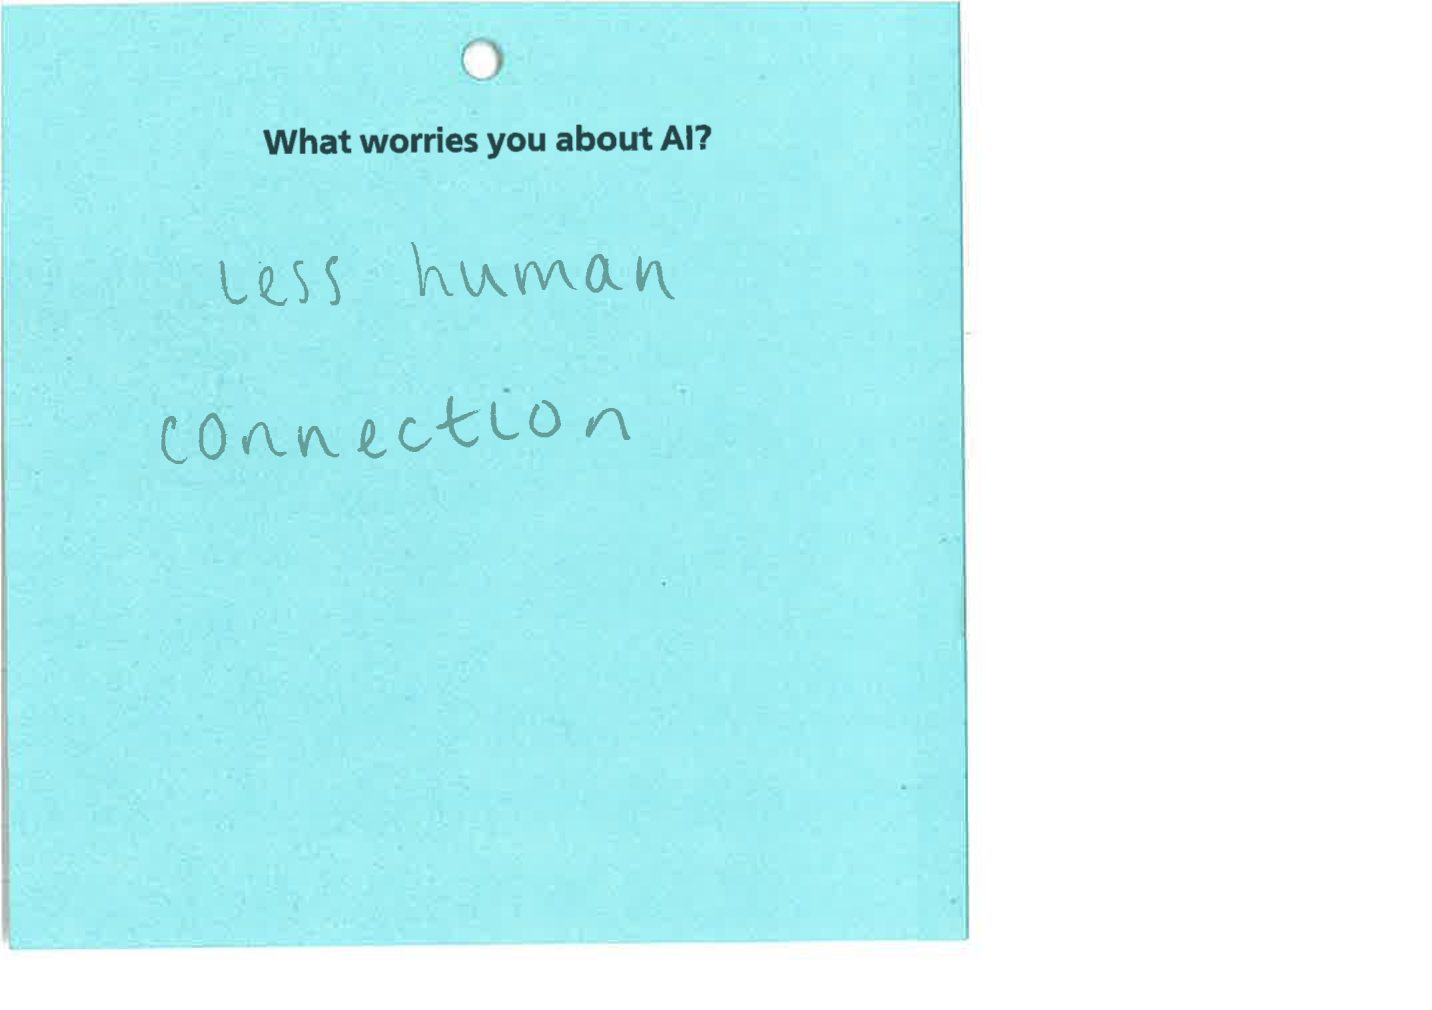 What worries you about AI?
Less human
connection